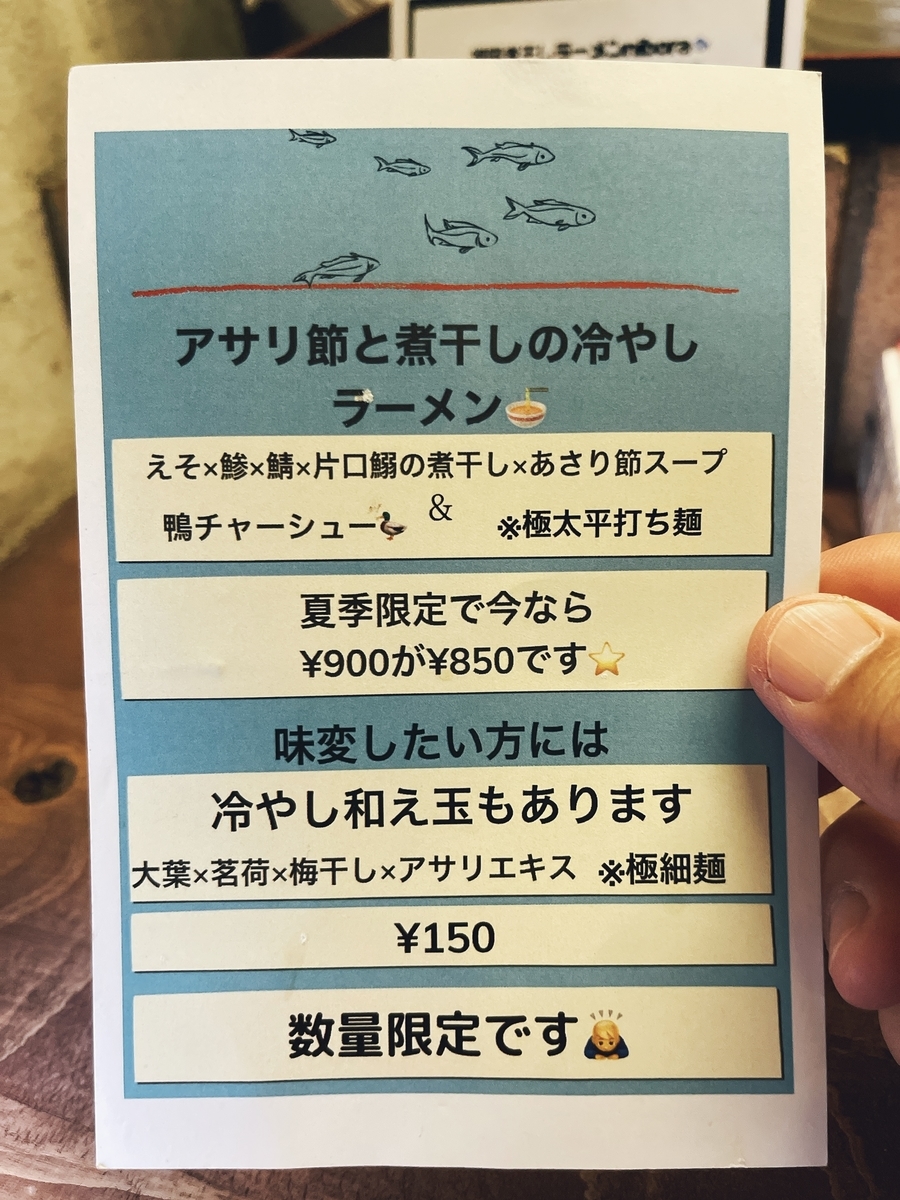 アサリ節と煮干しの冷やし
ラーメン🍜
えそ×鯵×鯖×片口鰯の煮干し×あさり節スープ
&
鴨チャーシュー🦆 ※極太平打ち麺
夏季限定で今なら
¥900が¥850です⭐
味変したい方には
冷やし和え玉もあります
大葉×茗荷×梅干し×アサリエキス ※極細麺
¥150
数量限定です🙇